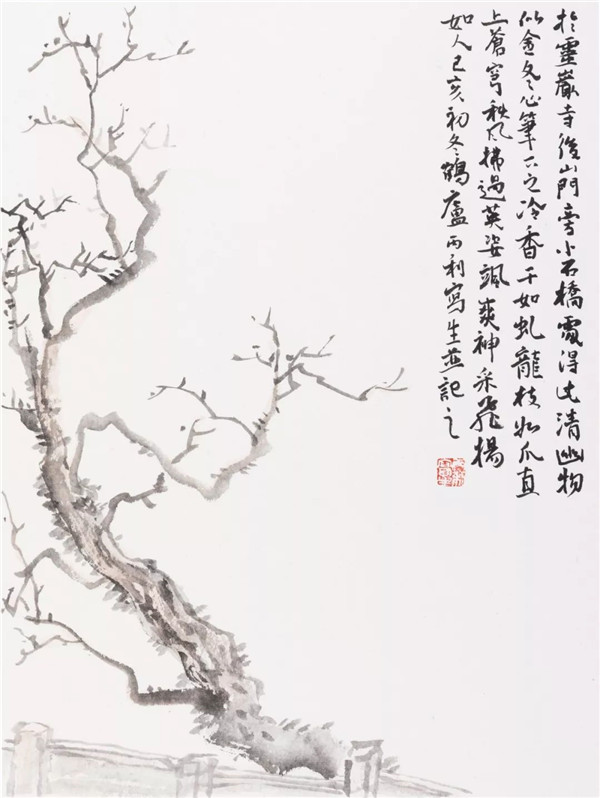 於靈巖寺後山門旁小石橋處得此清幽物
似金冬心筆下之冷香干如虬龍枝如爪直
上蒼穹秋风拂過英姿颯爽神采飛揚
如人己亥初冬鶴廬丙利寫生並記之